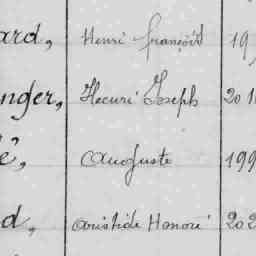 ard, Henri françois 19
nger, Hecuri Joseph 201
é, Auguste 199
d, Aristide Honoré 202